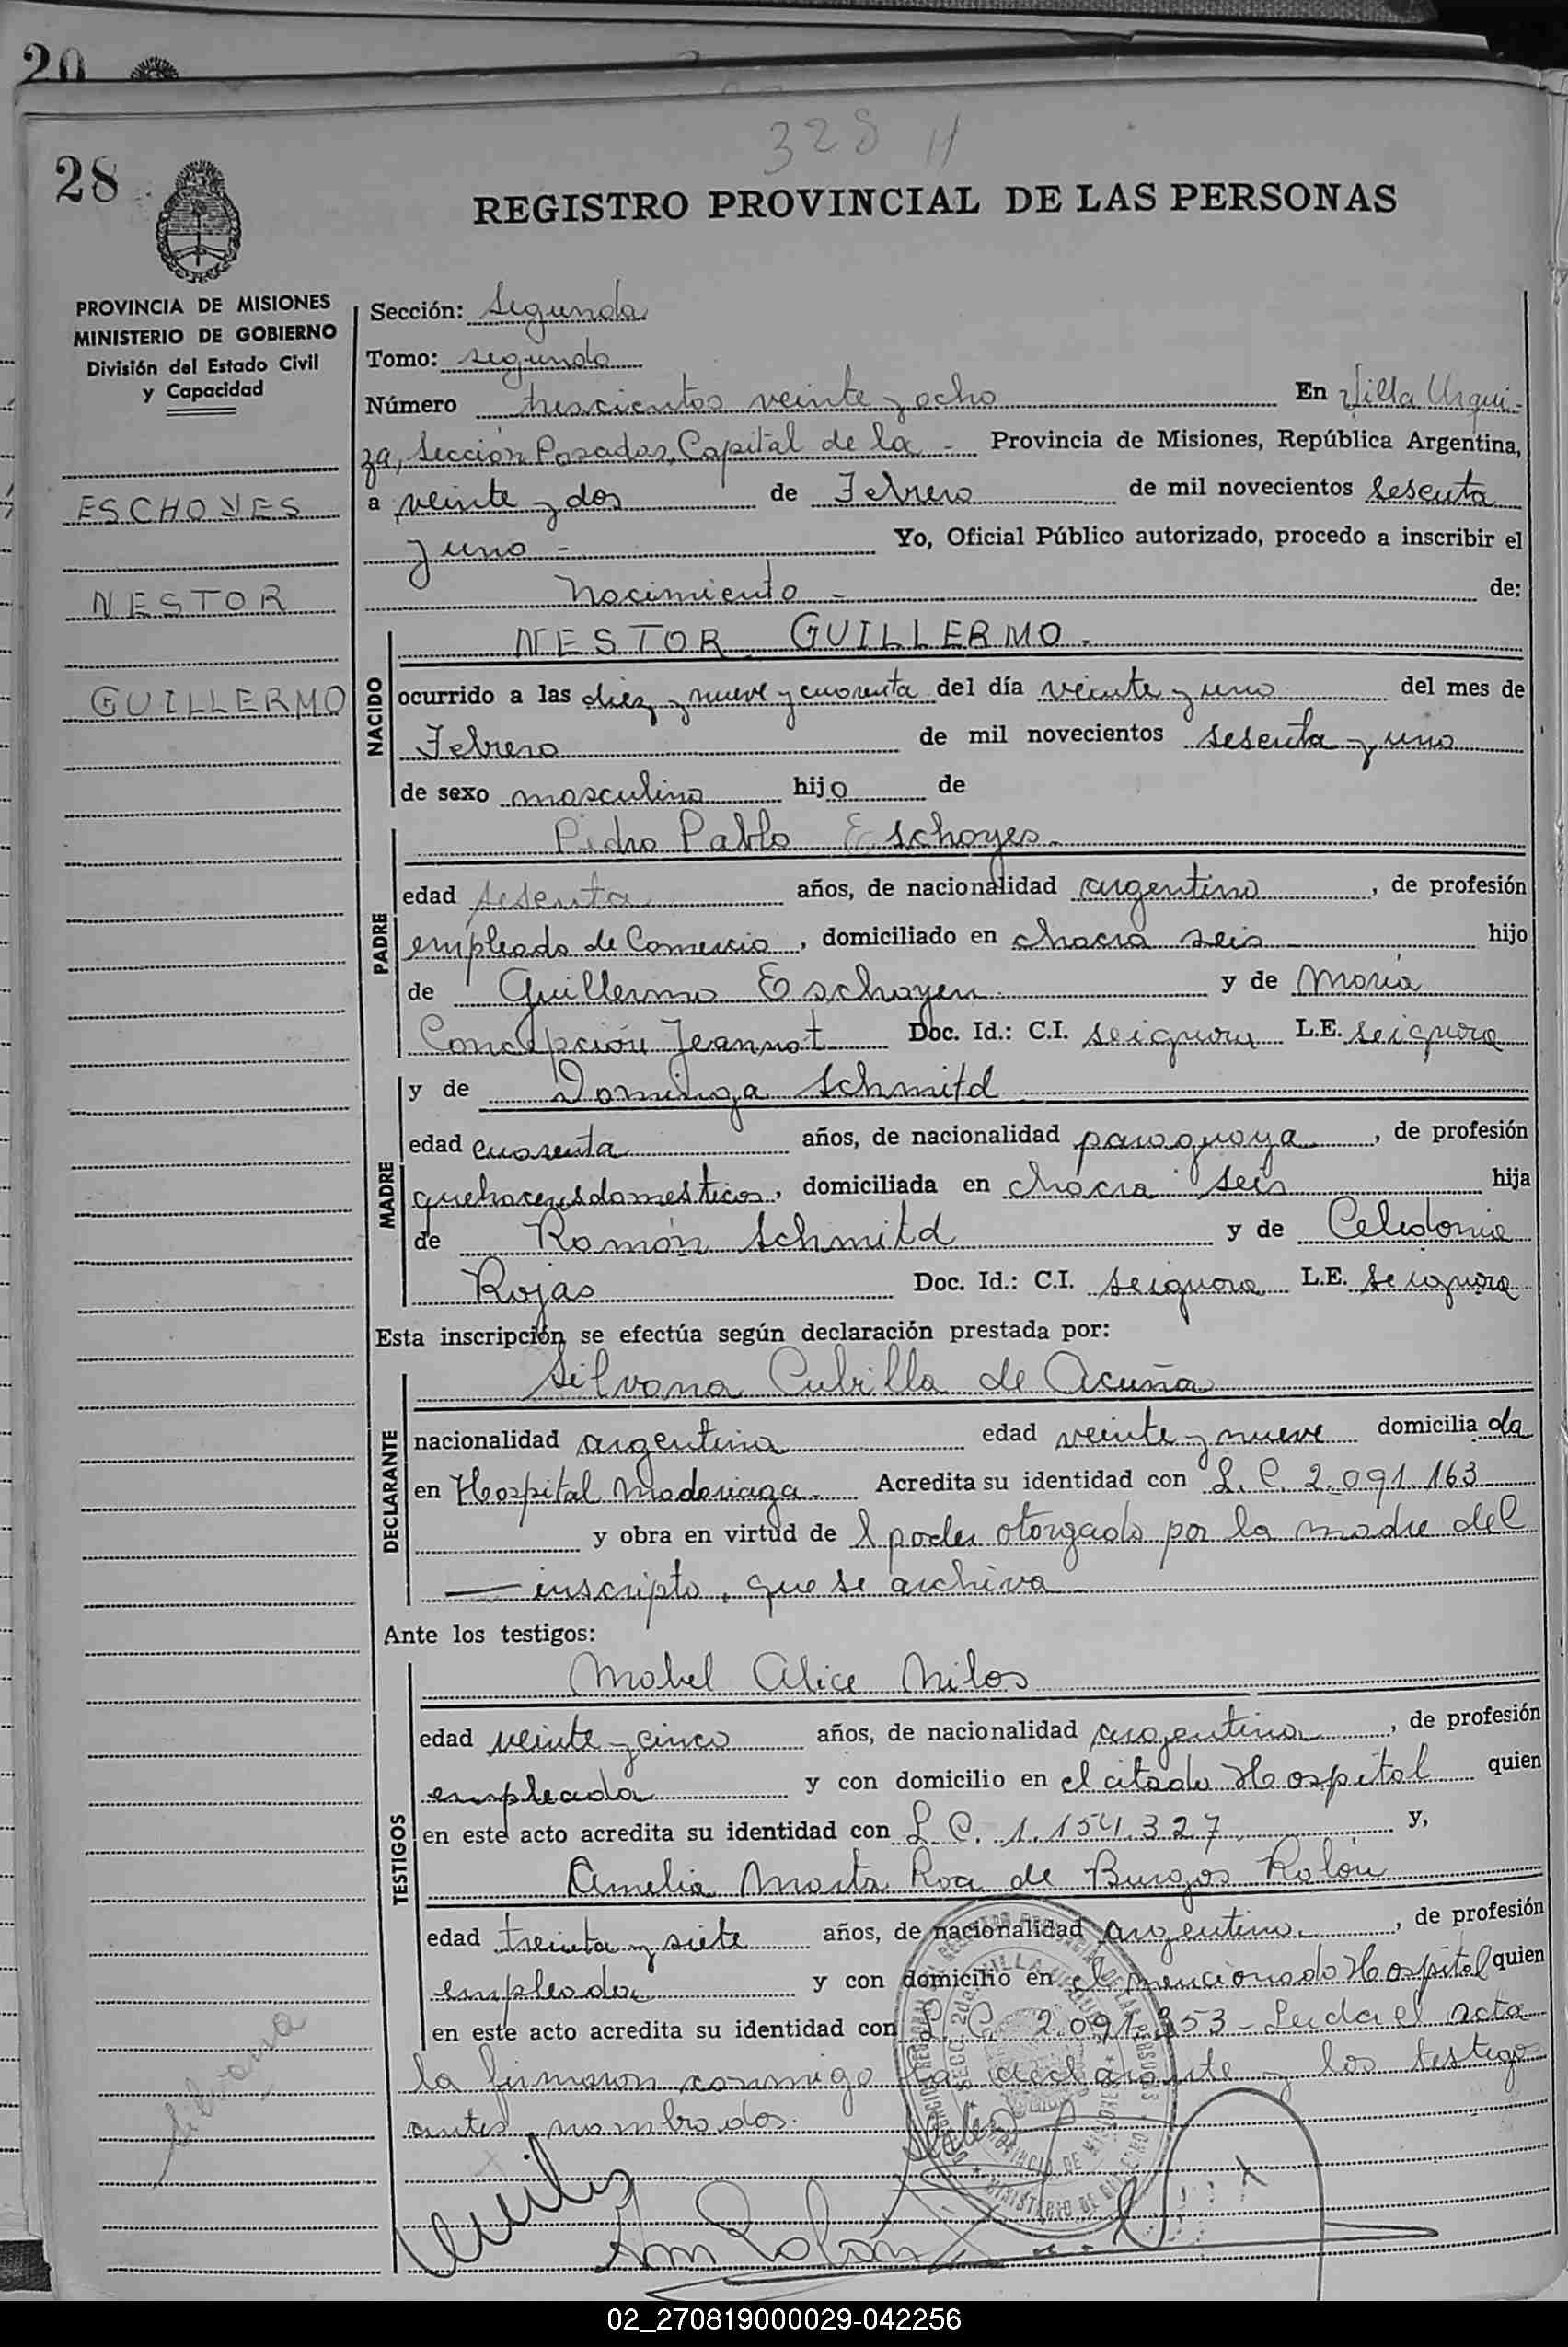 20
328 H
28
REGISTRO PROVINCIAL DE LAS PERSONAS
PROVINCIA DE MISIONES
MINISTERIO DE GOBIERNO
División del Estado Civil
y Capacidad
ESCHOYES
NESTOR
GUILLERMO
Sección: Segunda
Tomo: segundo
Número trescientos veinte y ocho En Villa Urqui-
za, Sección Posadas, Capital de la - Provincia de Misiones, República Argentina,
a veinte y dos de Febrero de mil novecientos sesenta
y uno - Yo, Oficial Público autorizado, procedo a inscribir el
Nacimiento - de:
NACIDO
NESTOR GUILLERMO.-
ocurrido a las diez y nueve y cuarenta del día veinte y uno del mes de
Febrero de mil novecientos sesenta y uno
de sexo masculino hijo de
PADRE
Pedro Pablo Eschoyes.-
edad sesenta años, de nacionalidad argentino, de profesión
empleado de Comercio, domiciliado en chacra seis hijo
de Guillermo Eschoyen y de María
Concepción Jeannot Doc. Id.: C.I. seignora L.E. seignora
MADRE
y de Dominga Schmitd
edad cuarenta años, de nacionalidad paraguaya, de profesión
quehaceres domésticos, domiciliada en chacra seis hija
de Ramón Schmitd y de Celedonia
Rojas Doc. Id.: C.I. seignora L.E. seignora
Esta inscripción se efectúa según declaración prestada por:
DECLARANTE
Silvana Cubilla de Acuña
nacionalidad argentina edad veinte y nueve domiciliada
en Hospital Madariaga. Acredita su identidad con L.C. 2.091.163
y obra en virtud de l poder otorgado por la madre del
inscripto, que se archiva
Ante los testigos:
TESTIGOS
Mabel Alice Milos
edad veinte y cinco años, de nacionalidad argentina, de profesión
empleada y con domicilio en el citado Hospital quien
en este acto acredita su identidad con L.C. 1.154.327 y,
Amelia Marta Roa de Burgos Rolón
edad treinta y siete años, de nacionalidad argentina, de profesión
empleada y con domicilio en el mencionado Hospital quien
en este acto acredita su identidad con L.C. 2.091.353 - Leida el acta
la firmaron conmigo la declarante y los testigos
antes nombrados.
Silvana
02_270819000029-042256